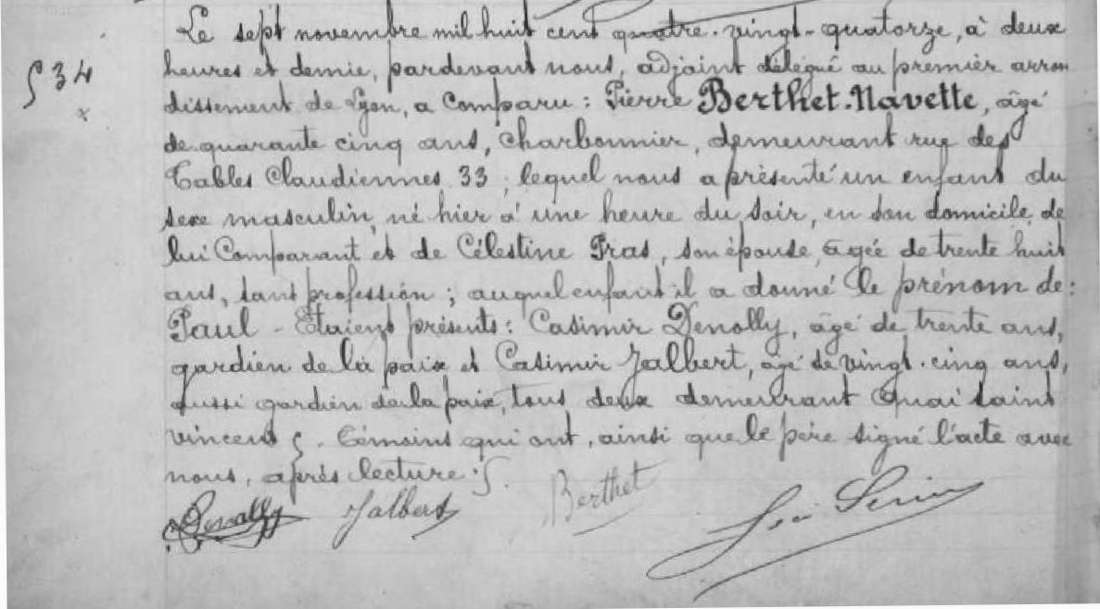 534
Le sept novembre mil huit cent quatre-vingt-quatorze, à deux
heures et demie, pardevant nous, adjoint délégué au premier arron
dissement de Lyon, a Comparu : Pierre Berthet-Navette, âgé
de quarante cinq ans, charbonnier, demeurant rue des
Tables Claudiennes 33 ; lequel nous a présenté un enfant du
sexe masculin, né hier à une heure du soir, en son domicile, de
lui Comparant et de Célestine Pras, son épouse, âgée de trente huit
ans, sans profession ; auquel enfant il a donné le prénom de :
Paul - Etaient présents : Casimir Denolly, âgé de trente ans,
gardien de la paix et Casimir Jalbert, âgé de vingt-cinq ans,
aussi gardien de la paix, tous deux demeurant quai Saint
Vincent . témoins qui ont, ainsi que le père signé l'acte avec
nous, après lecture .
Denolly Jalbert Berthet